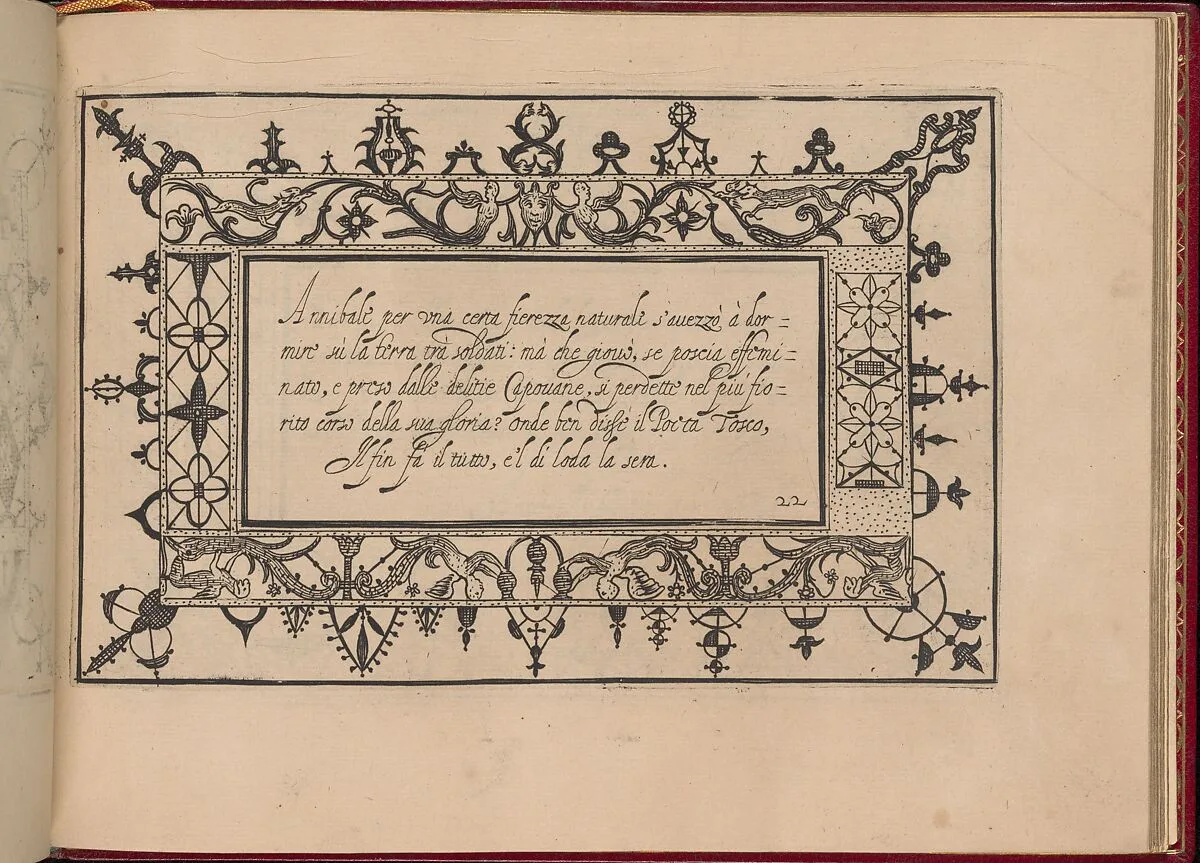 Annibale per vna certa fierezza naturale s'auezzò à dor=
mire sù la terra trà soldati: mà che giouò, se poscia effemi=
nato, e preso dalle delitie Capouane, si perdette nel più fio=
rito corso della sua gloria? onde ben disse il Poeta Tosco,
Il fin fà il tutto, e'l dì loda la sera.
22